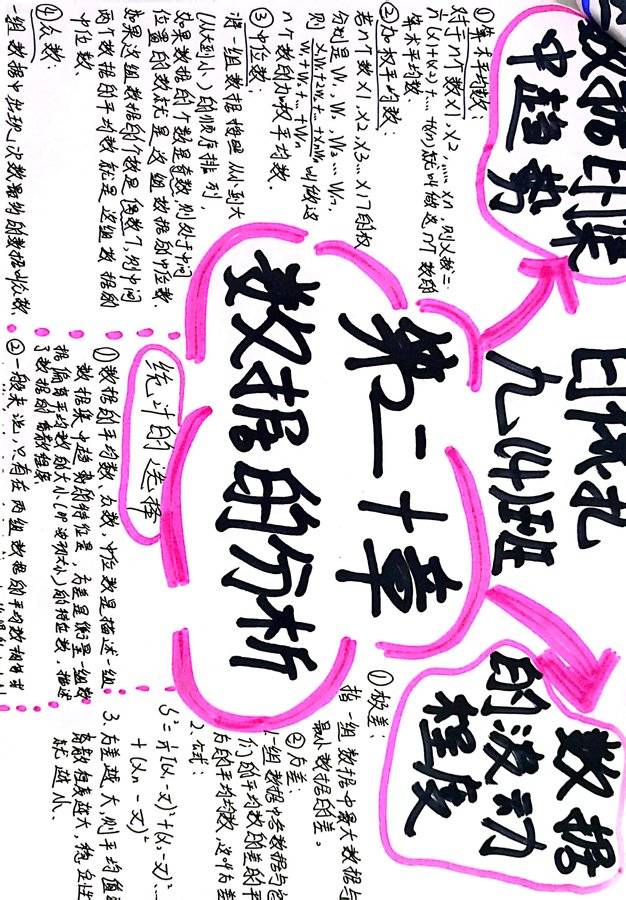 第二十章
数据的分析
九(4)班
数据的集
中趋势
①算术平均数:
对于n个数x1,x2,……xn,则
算术平均数.
②加权平均数:
若n个数x1,x2,x3…x17的权
分别是W1,W2…Wn,
则
叫做这
n个数的加权平均数.
③中位数:
将一组数据按照从小到大
(从大到小)的顺序排列,
如果数据的个数是奇数,则处于中间
位置的数就是这组数据的中位数.
如果这组数据的个数是偶数,则中间
两个数据的平均数就是这组数据的
中位数.
④众数:
一组数据中出现次数最多的数据叫众数.
统计的选择
①数据的平均数,众数,中位数是描述一组
数据集中趋势的特征量,方差是衡量一组数
据偏离平均数的大小(即波动大小)的特征数,描述
了数据的离散程度
②一般来说,只有在两组数据的平均数相等或
数据
的波动
程度
①极差:
指一组数据中最大数据与
最小数据的差。
②方差:
1.组数据中各数据与它
们的平均数的差的平
方的平均数,这叫方差
2.公式:
3.方差越大,则平均值
离散程度越大,稳定性
就越小.